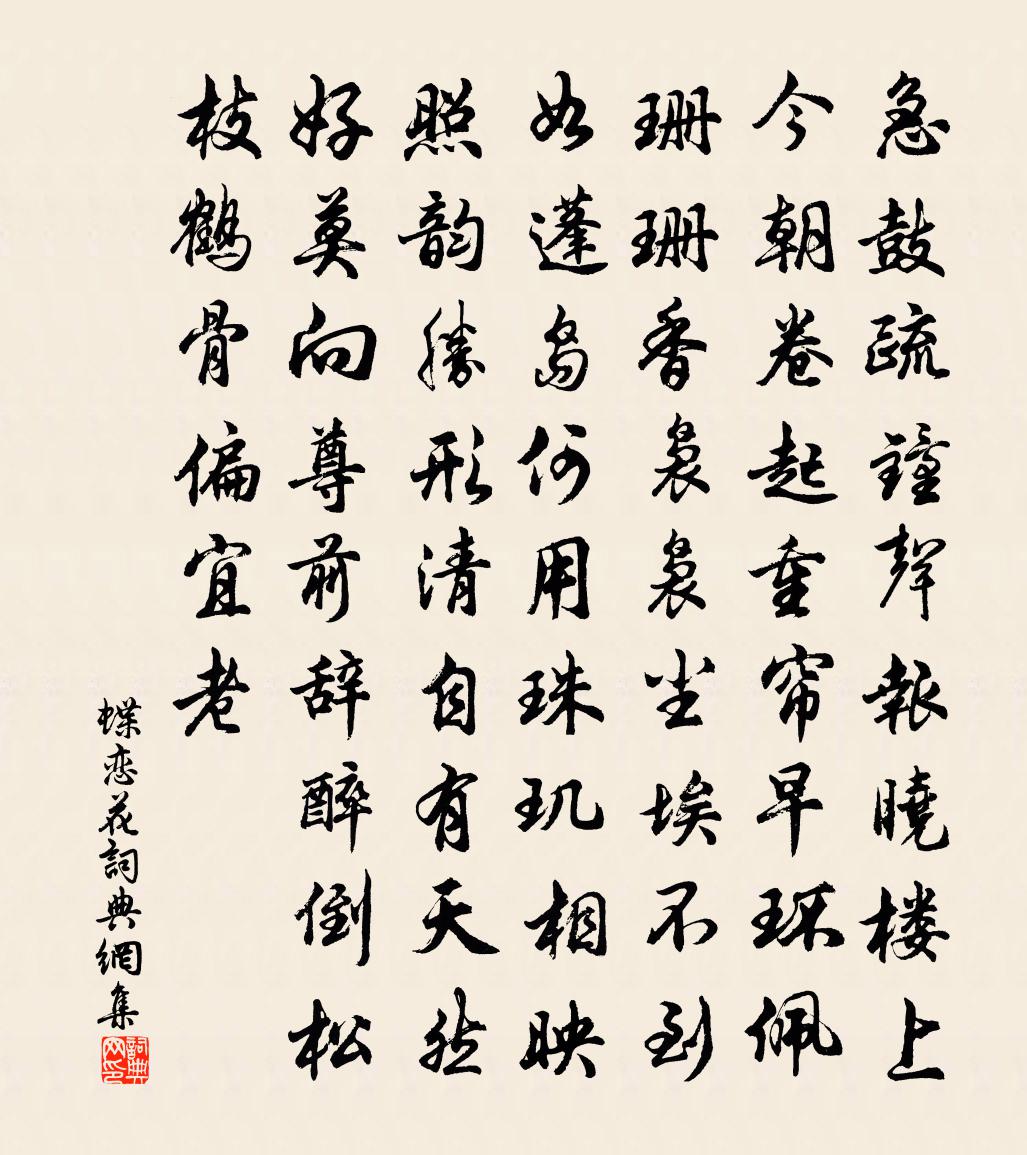 急鼓疏鐘聲報曉楼上
今朝卷起重帘早环佩
珊珊香裊裊尘埃不到
如蓬島何用珠玑相映
照韵勝形清自有天然
好莫向尊前辞醉倒松
枝鶴骨偏宜老
蝶恋花詞典網集
詞典网印